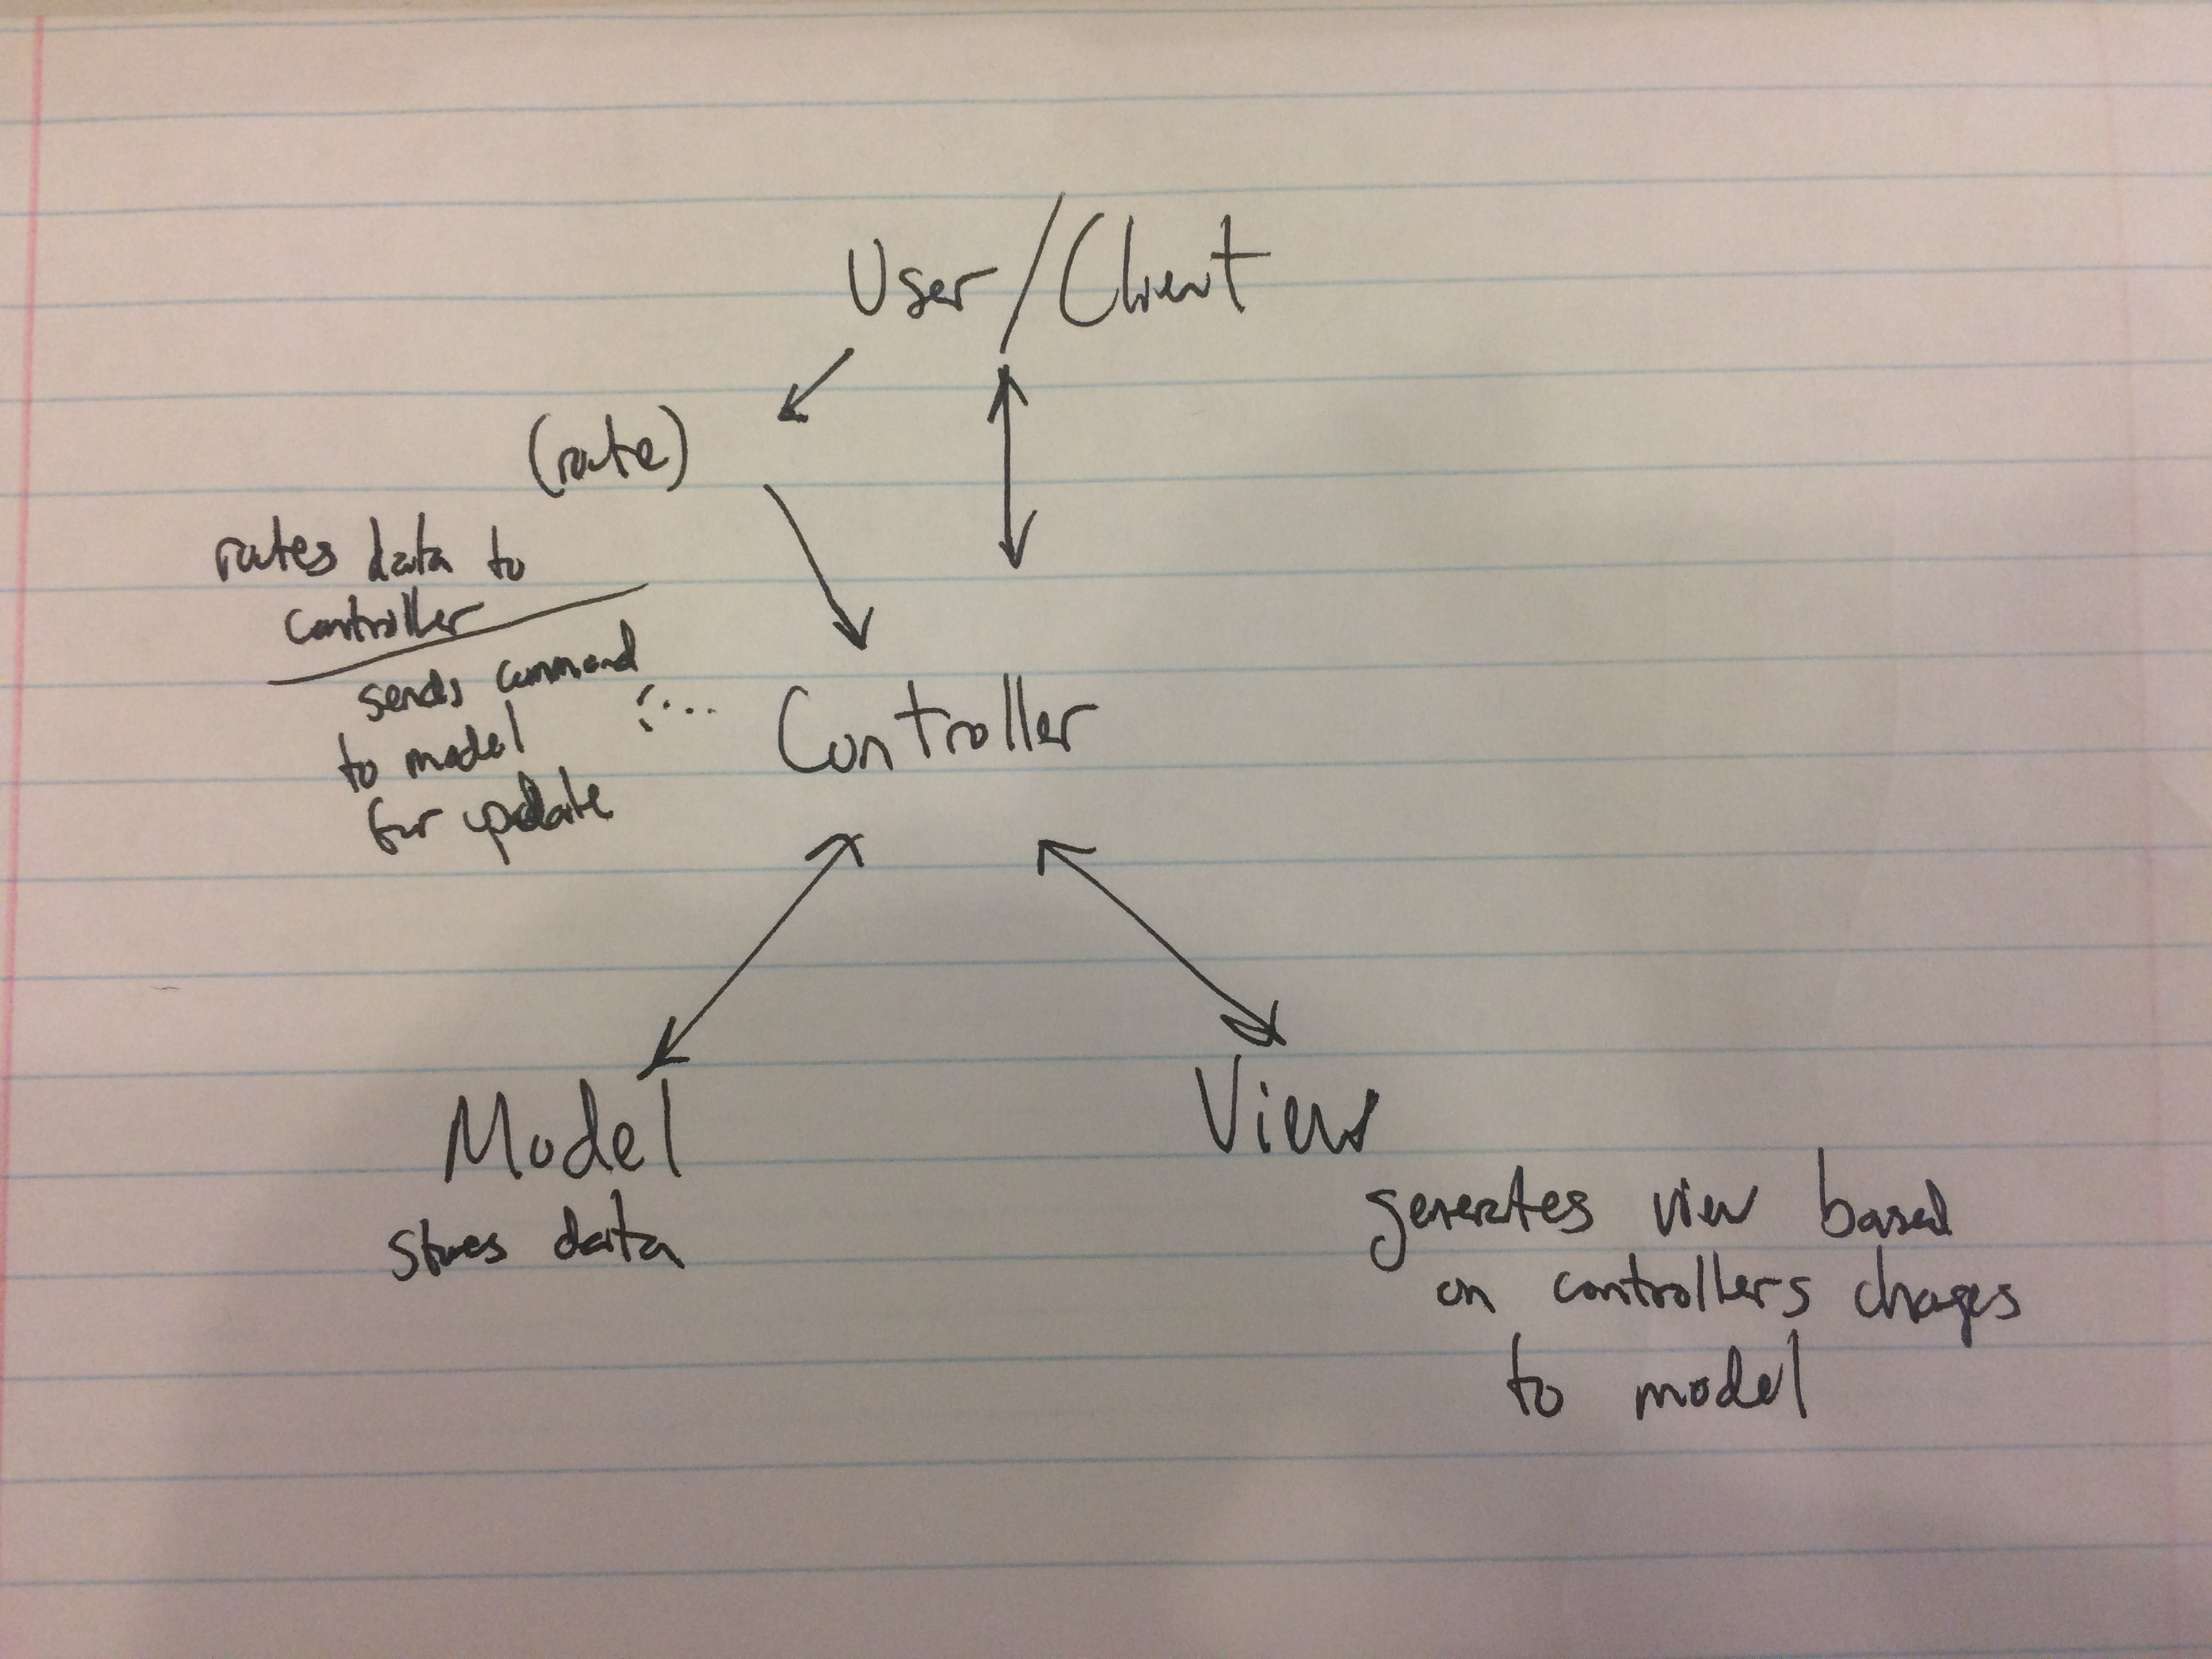 User/Client
(route)
routes data to
controller
sends command
to model
for update
Controller
Model
stores data
View
generates view based
on controllers changes
to model